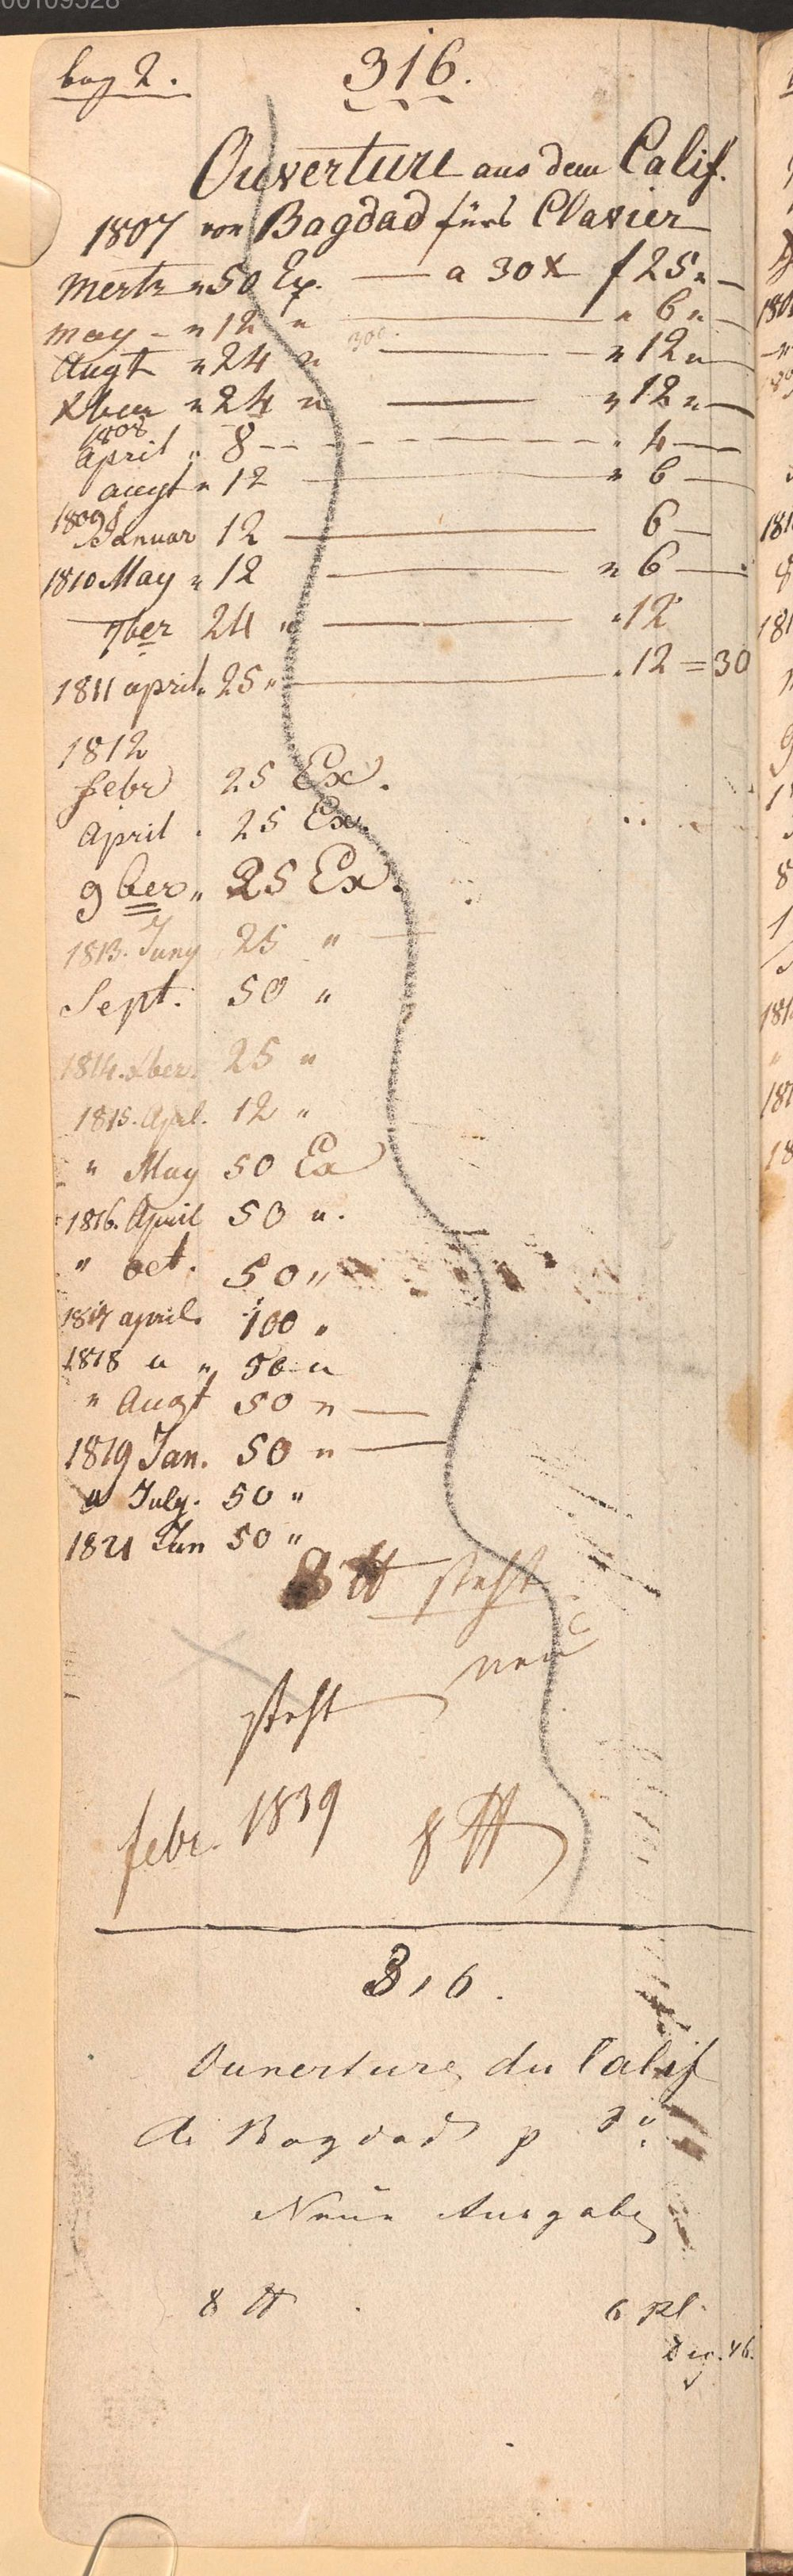 00109528
bog 2.
316.
Ouverture aus dem Calif.
1807 von Bagdad fürs Clavier
Mertz " 50 Ex. — a 30 x f 25 " —
May — " 12 " — " 6 " —
300.
Augt " 24 " — " 12 " —
Xber " 24 " — " 12 " —
1808
April " 8 — — " 4 —
augt " 12 — " 6 —
1809
Januar 12 — 6 —
1810 May " 12 — " 6 —
7ber 24 " — " 12
1811 april " 25 " — " 12 = 30
1812
febr 25 Ex.
April . 25 Ex.
9ber " 25 Ex.
1813. Juny 25 " —
Sept. 50 "
1814. xber. 25 "
1815. Apl. 12 "
" May 50 Ex
1816. April 50 ".
" oct. 50 "
1817 april. 100 "
1818 " " 50 "
" Augt 50 " —
1819 Jan. 50 " —
" July. 50 "
1821 Jan 50 "
8 tt steht
neu
steht
febr. 1839 8 tt
316.
Ouverture du Calif
de Bagdad p
Neue Ausgabe
8 tt 6 pl.
Dez. 46.